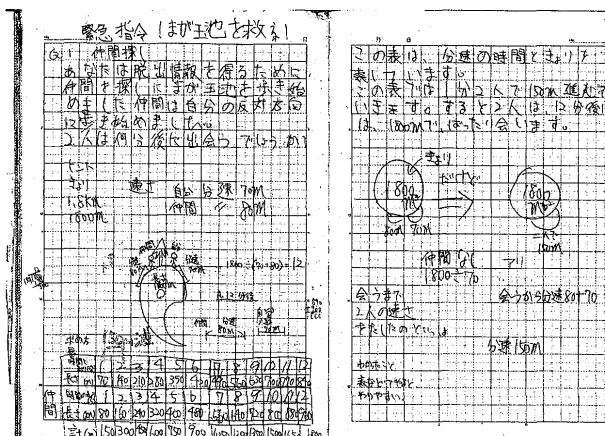 緊急指令!まが玉池を救え!
Q1 仲間探し
あなたは脱出情報を得るために
仲間を探しにまが玉池を歩き始
めました仲間は自分の反対方向
に歩き始めました。
2人は何分後に出会うでしょうか
ヒント
きょり 速さ 自分 分速70m
1.8km 仲間 〃 80m
1800m
1800÷(70+80)=12
A.12分後
仲間 分速80m
求め方
1 2 3 4 5 6 7 8 9 10 11 12
長さ(m) 70 140 210 280 350 420 490 560 630 700 770 840
仲間 1 2 3 4 5 6 7 8 9 10 11 12
長さ(m) 80 160 240 320 400 480 560 640 720 800 880 960
計(m) 150 300 450 600 750 900 1050 1200 1350 1500 1650 1800
この表は、分速の時間ときょりを
表しています。
この表では1分2人で150m進んで
いきます。すると2人は12分後に
は、1800mで、ばったり会います。
きょり
1800m だけど 1800m
80m 70m 二人で150m
仲間なし アリ
1800÷70
会うまで 会うから分速80+70
2人の速さ
をたしたのといっしょ
分速150m
わかったこと
表をつかうと
わかりやすい。